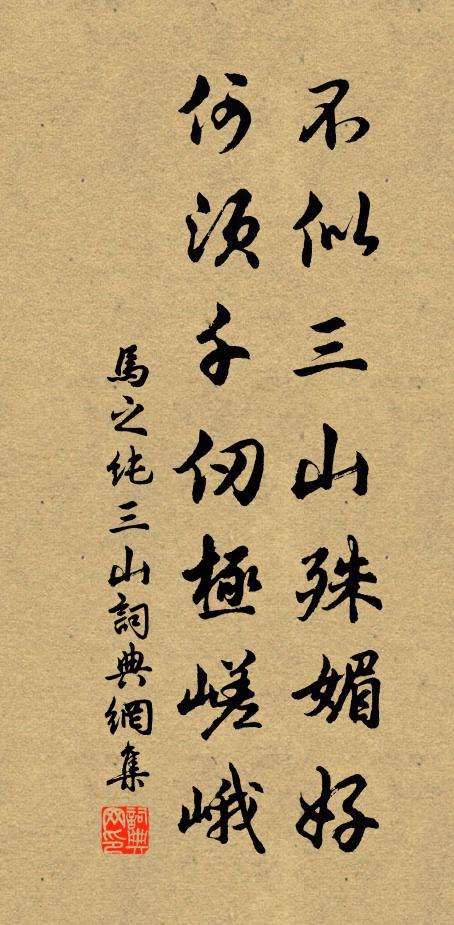 不似三山殊媚好
何須千仞極嵯峨
馬之純三山詞典網集
詞典網印